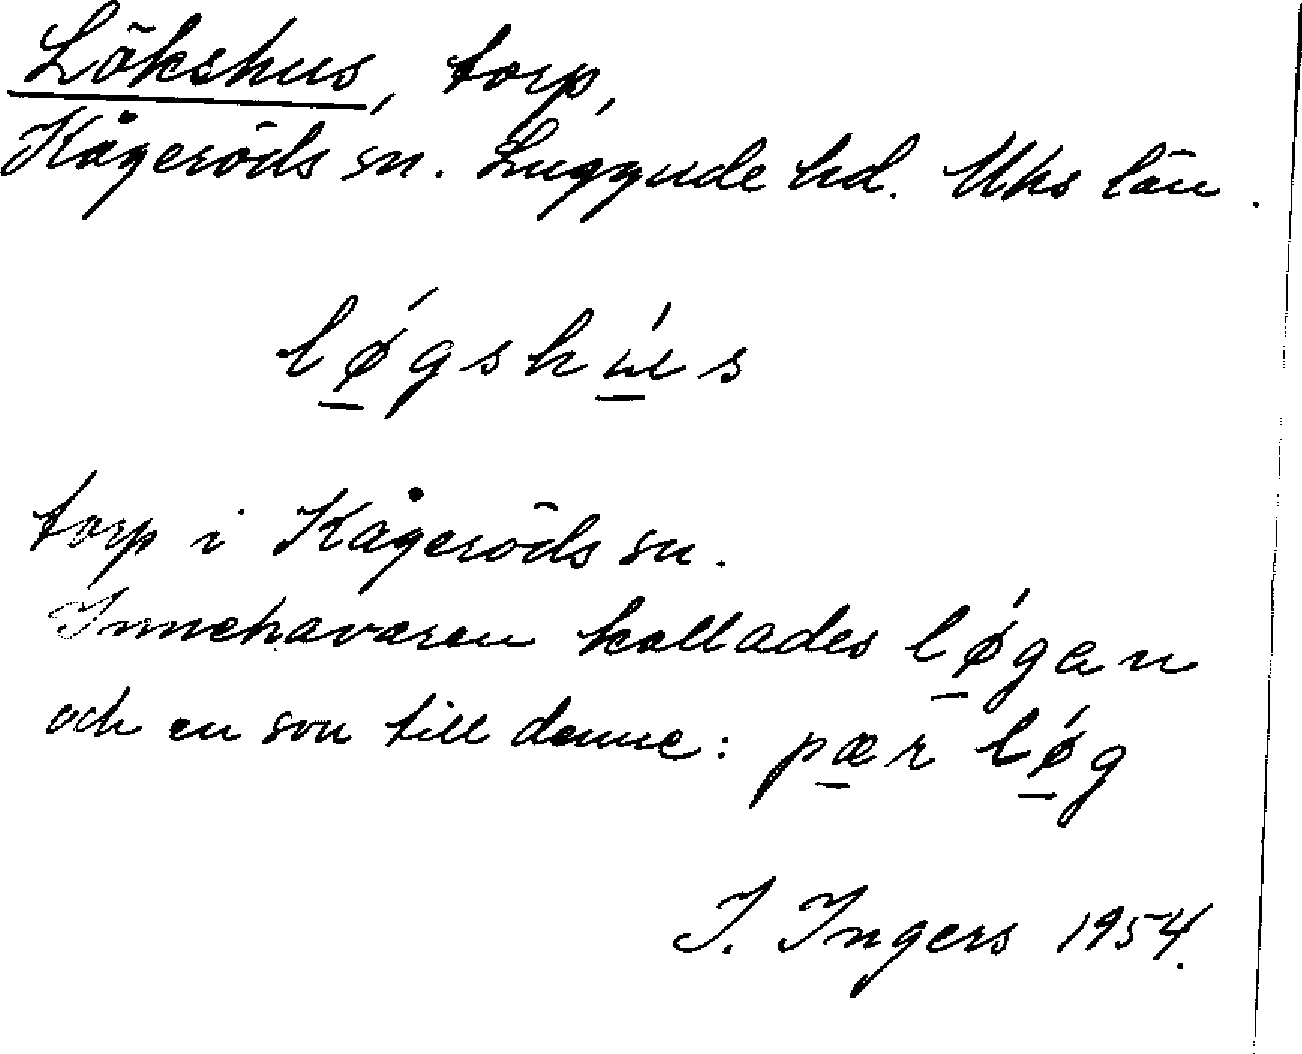 Lökshus, torp,
Kågeröds sn. Luggude hd. Mhs län.
lǿ̲gshú̲s
torp i Kågeröds sn.
Innehavaren kallades lǿ̲gan
och en son till denne: pæ̲r lǿ̲g
I. Ingers 1954.